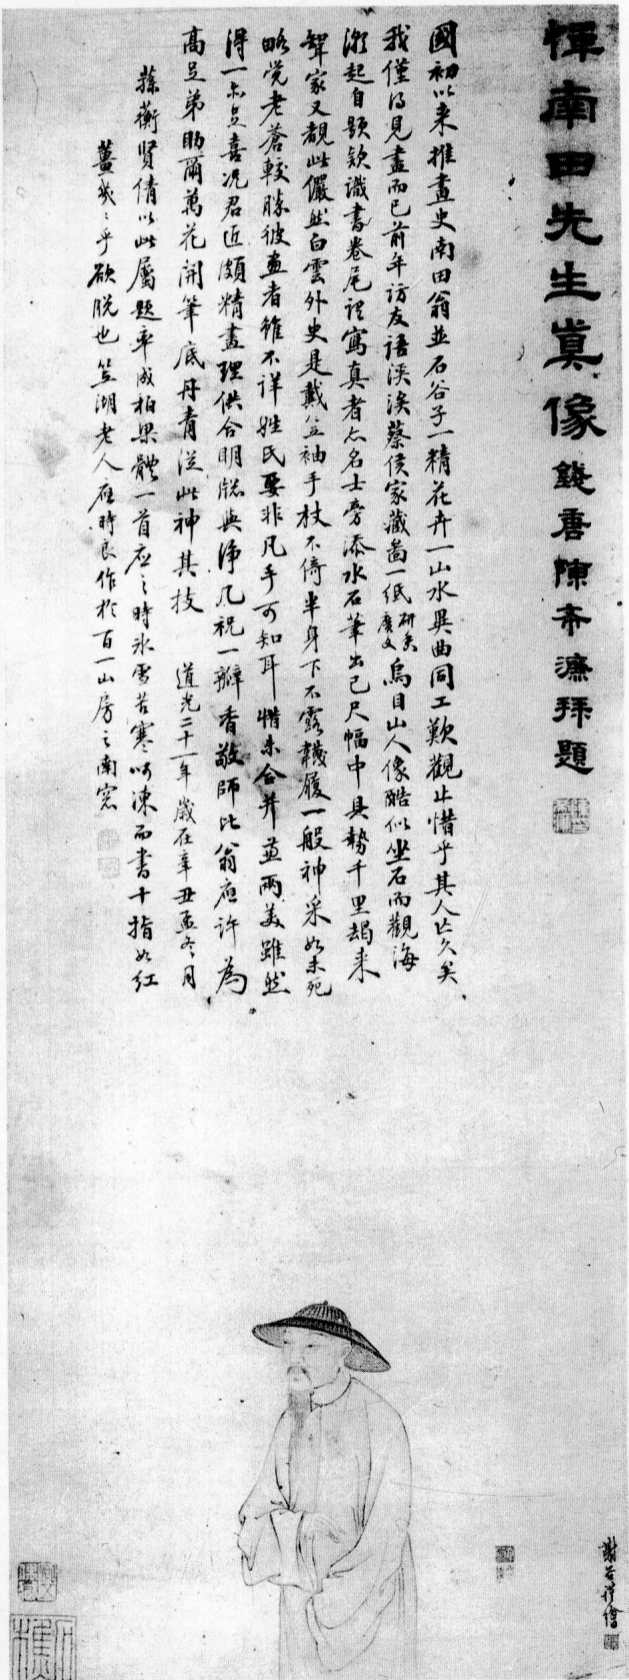 惲南田先生真像 錢唐陳希濂拜題
國初以來推畫史南田翁並石谷子一精花卉一山水異曲同工歎觀止惜乎其人亡久矣
我僅得見畫而已前年訪友語溪涘蔡侯家藏啚一紙 研香廣文 烏目山人像酷似坐石而觀海
瀾起自題款識書卷尾 寫真者亦名士旁添水石筆出己尺幅中具勢千里朅來
家又覩此儼然白雲外史是戴笠袖手杖不倚半身下不露韈履一般神采如未死
略覺老蒼較勝彼畫者雖不詳姓氏要非凡手可知耳惜未合并並兩美雖然
得一亦足喜況君近頗精畫理供合明牕與淨几祝一瓣香敬師比翁應許為
高足弟助爾萬花開筆底丹青從此神其技 道光二十一年歲在辛丑孟冬月
蓀蘅賢倩以此屬題率成柏梁體一首應之時冰雪苦寒呵凍而書十指如紅
薑幾幾乎欲脫也笠湖老人應時良作於百一山房之南窓
謝谷 繪